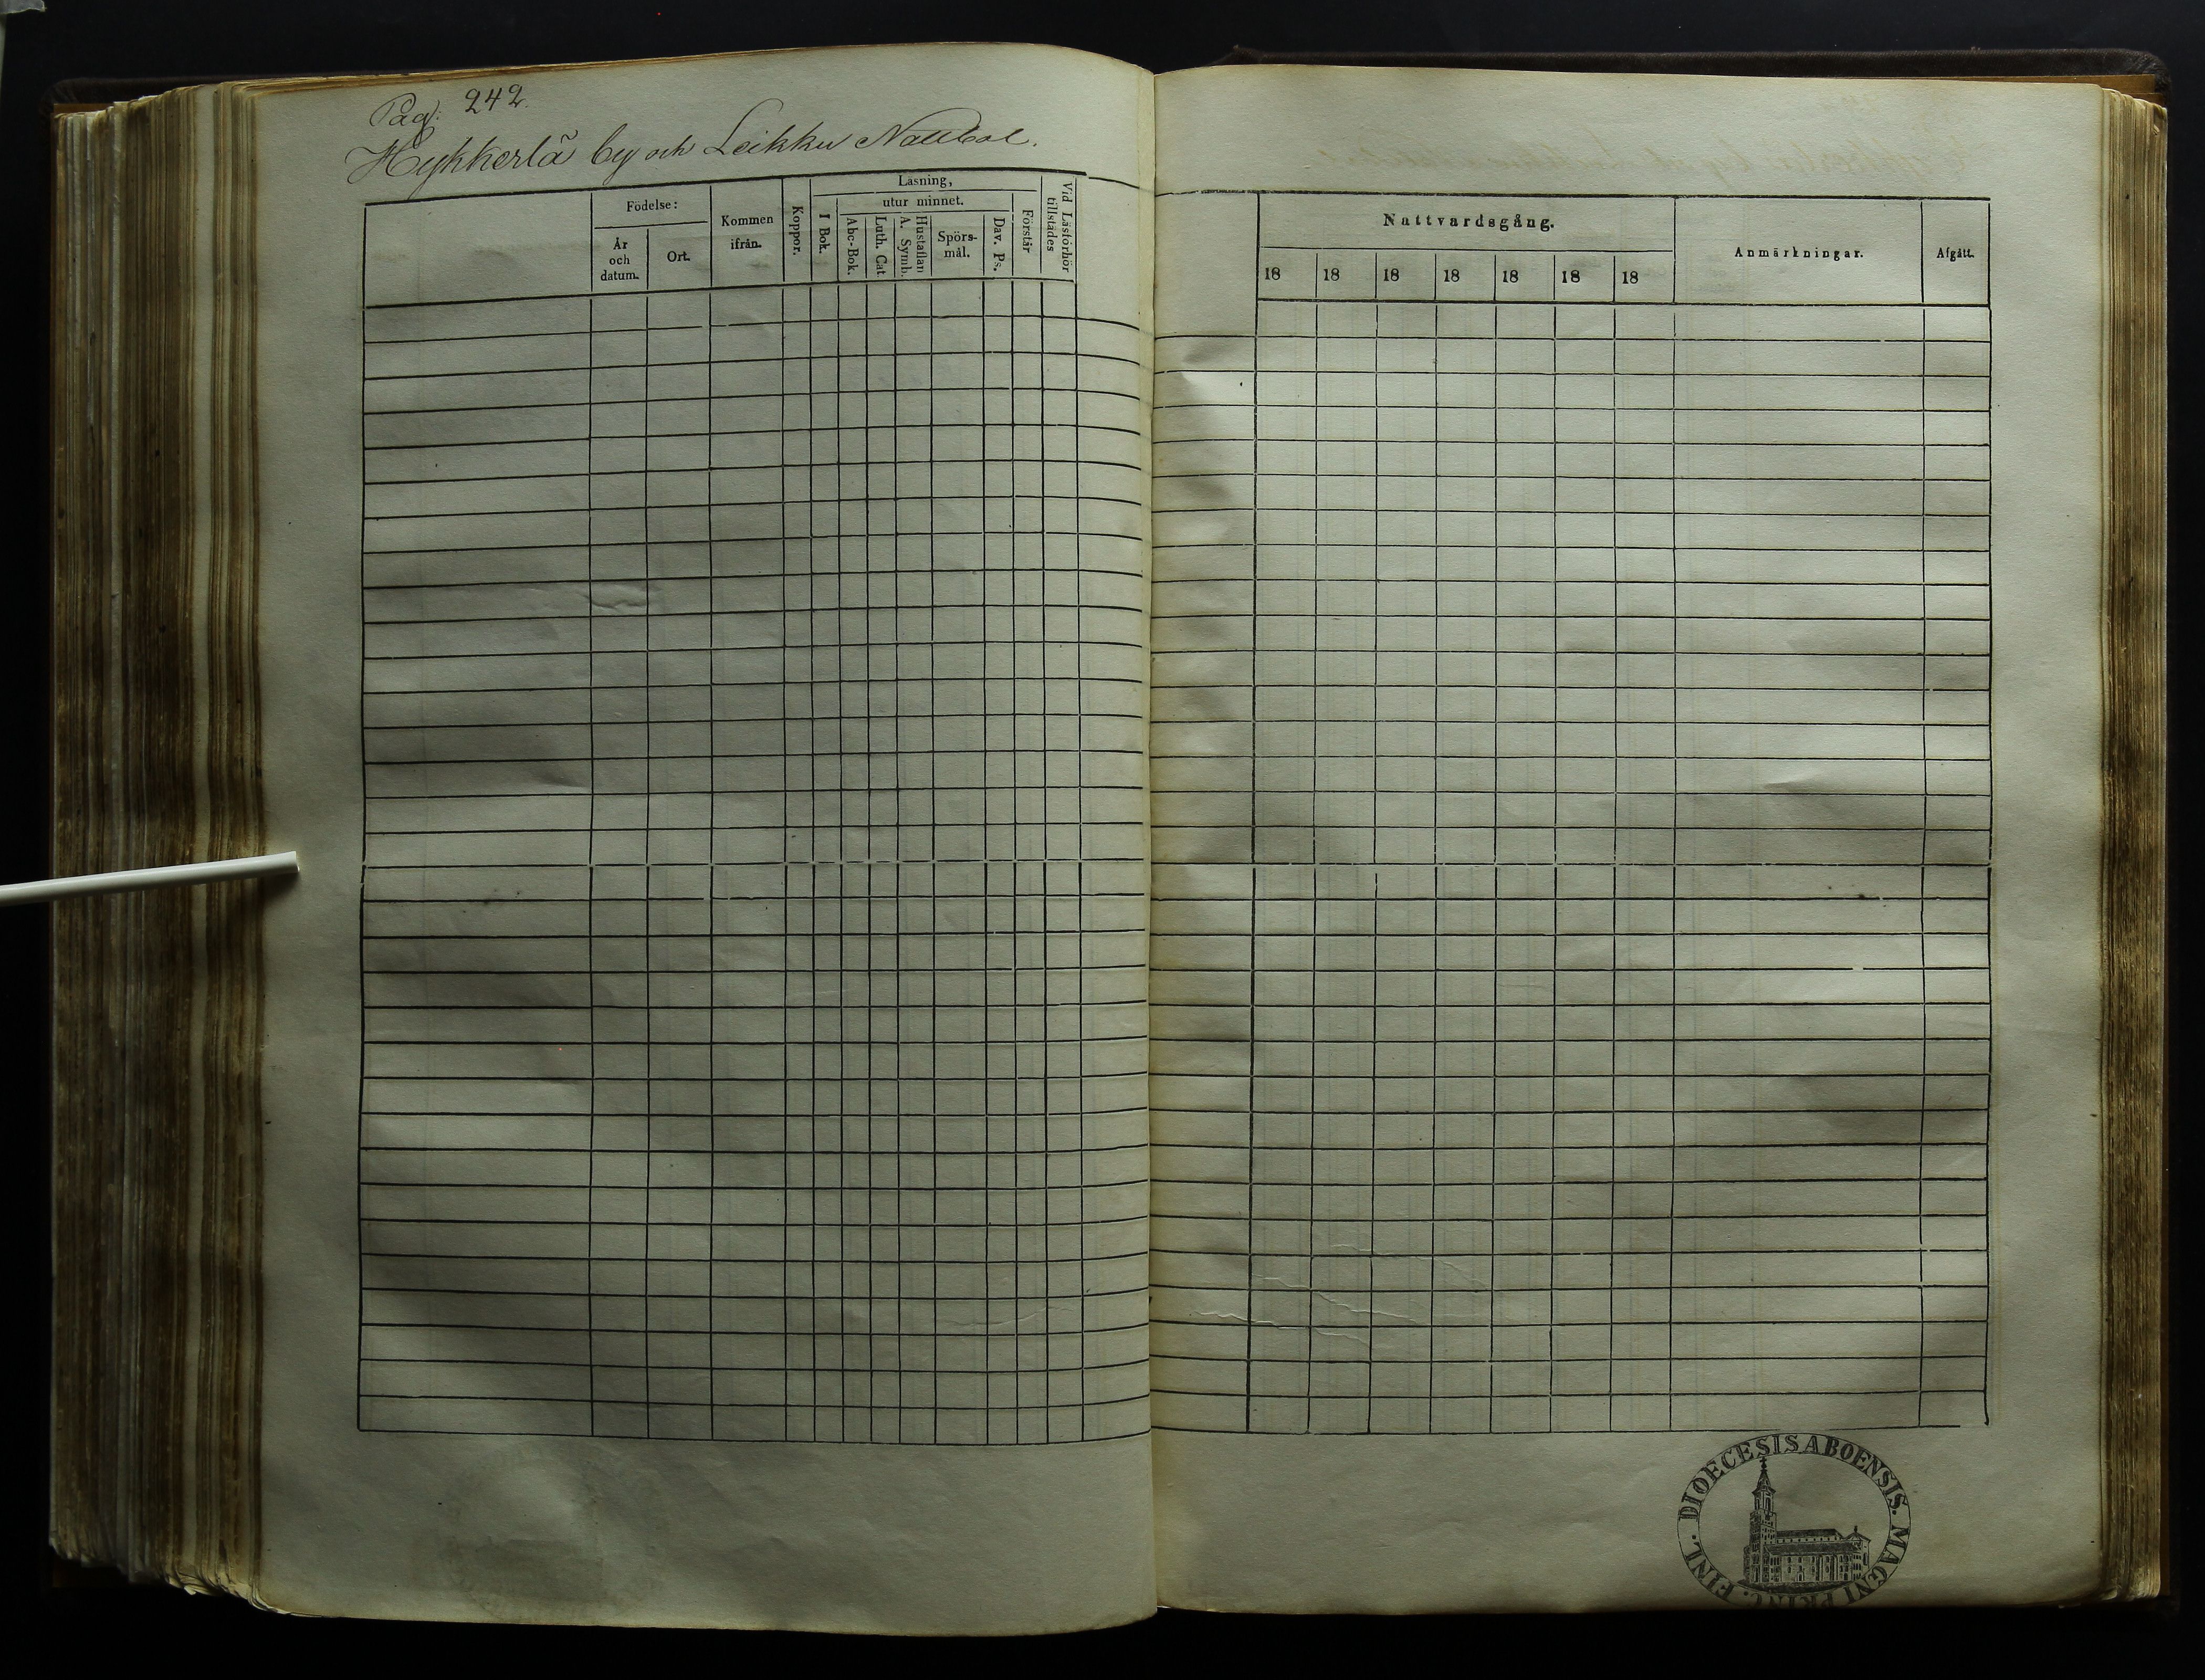 Pag: 242.
Hykkerlä by och Leikku Nattbol.
Födelse:
År och datum.
Ort.
Kommen ifrån.
Koppor.
Läsning,
utur minnet.
I Bok.
Abc-Bok.
Luth. Cat
Hustaflan A. Symb.
Spörs-mål.
Dav. Ps.
Förstår
Vid Läsförhör tillstädes
Nattvardsgång.
18 18 18 18 18 18 18
Anmärkningar.
Afgått.
DIOECESIS ABOENSIS. MAGNI PRINC. FINL.